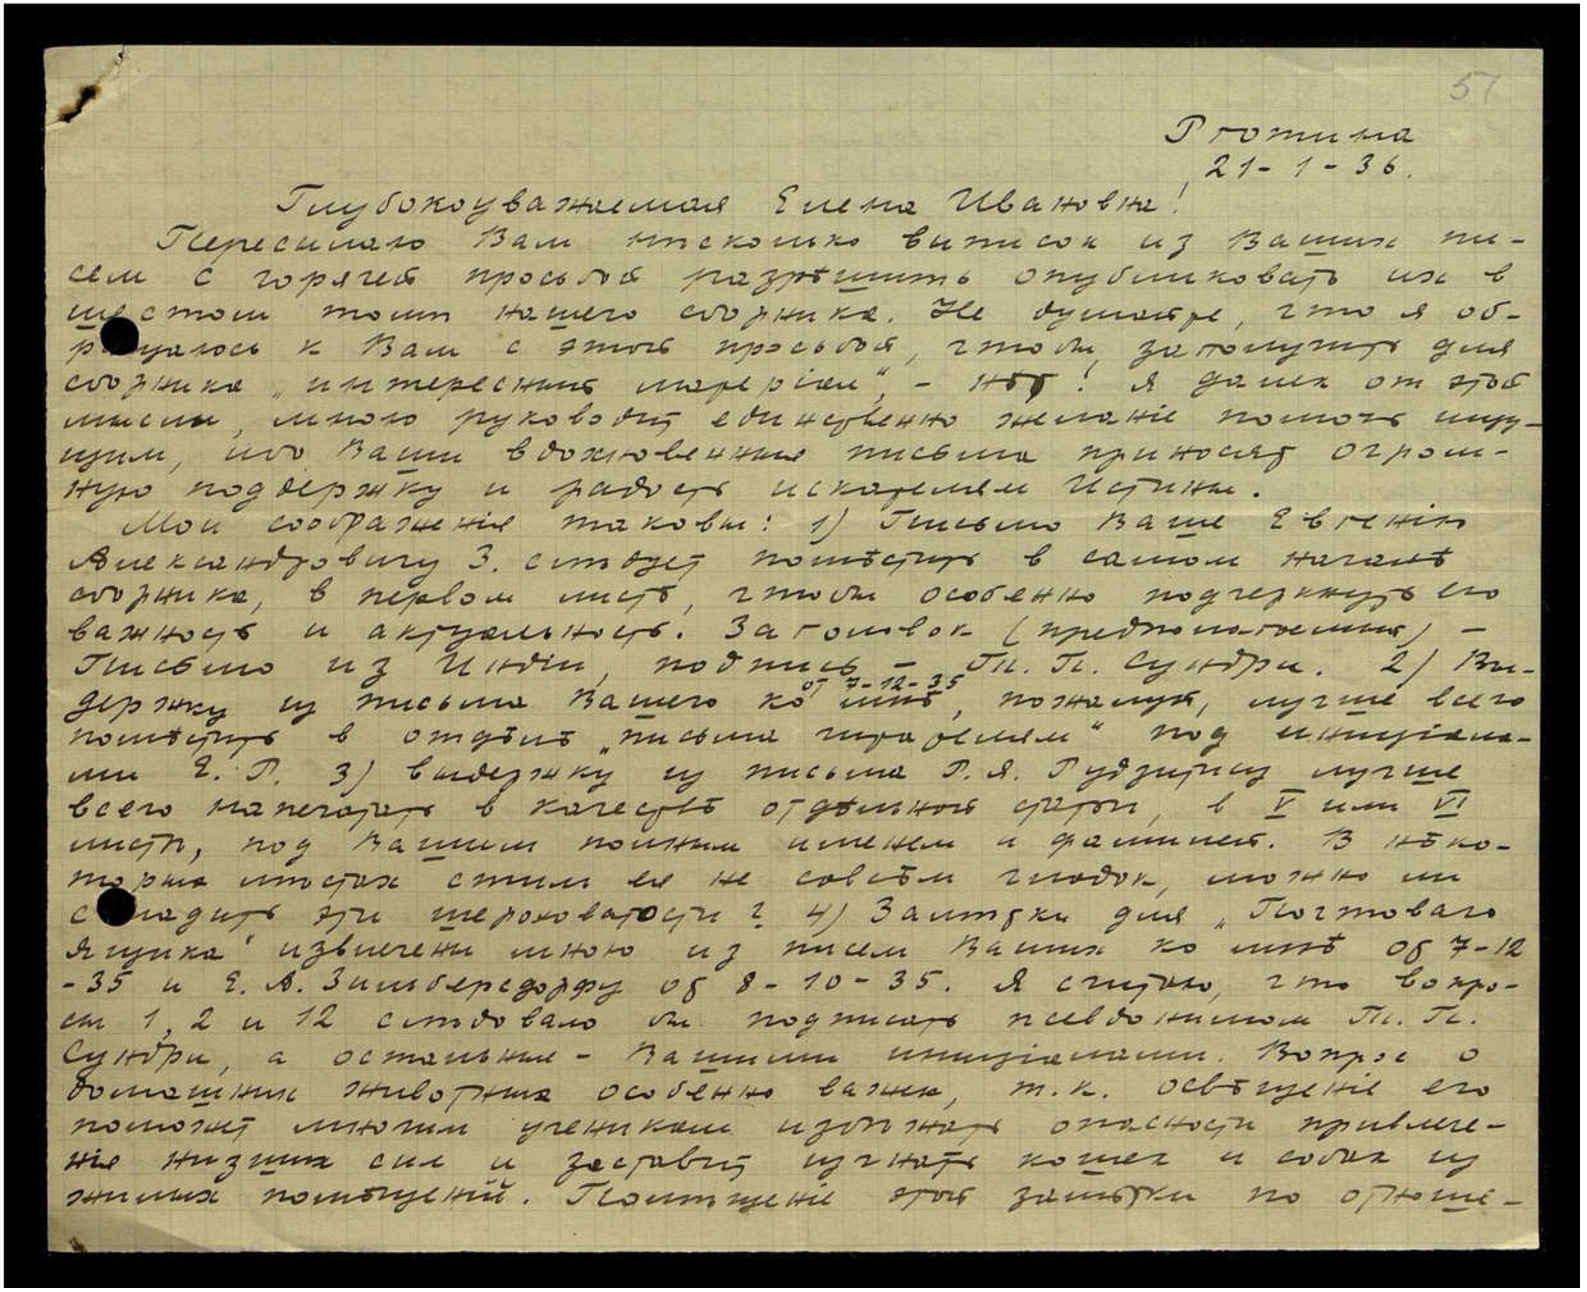 51
Рготина
21-1-36.
Глубокоуважаемая Елена Ивановна!
Пересылаю Вам нѣсколько выписок из Ваших пи-
сем с горячей просьбой разрѣшить опубликовать их в
шестом томѣ нашего сборника. Не думайте, что я об-
ращаюсь к Вам с этой просьбой, чтобы заполучить для
сборника „интересный матеріал", - нѣт! Я далек от этой
мысли, мною руководит единственно желаніе помочь ищу-
щим, ибо Ваши вдохновенные письма приносят огром-
ную поддержку и радость искателям Истины.
Мои соображенія таковы: 1) Письмо Ваше Евгенію
Александровичу З. слѣдует помѣстить в самом началѣ
сборника, в первом листѣ, чтобы особенно подчеркнуть его
важность и актуальность. Заголовок (предполагаемый) -
Письмо из Индіи, подпись - Тл. Тл. Сундри. 2) Вы-
от 7-12-35
держку из письма Вашего ко мнѣ, пожалуй, лучше всего
помѣстить в отдѣлѣ „письма читателям" под инициала-
ми Е. Р. 3) выдержку из письма Р. Я. Рудзитису лучше
всего напечатать в качествѣ отдѣльной статьи, в V или VI
листѣ, под Вашим полным именем и фамиліей. В нѣко-
торых мѣстах стиль ея не совсѣм гладок, можно ли
сгладить эти шероховатости? 4) Замѣтки для „Почтоваго
Ящика" извлечены мною из писем Ваших ко мнѣ от 7-12
-35 и Е. А. Зильберсдорфу от 8-10-35. Я считаю, что вопро-
сы 1, 2 и 12 слѣдовало бы подписать псевдонимом
Сундри, а остальные - Вашими инициалами. Вопрос о
домашних животных особенно важен, т.к. освѣщеніе его
поможет многим ученикам избѣжать опасности привлече-
нія низших сил и заставит изгнать кошек и собак из
жилых помѣщеній. Помѣщеніе этой замѣтки по отноше-